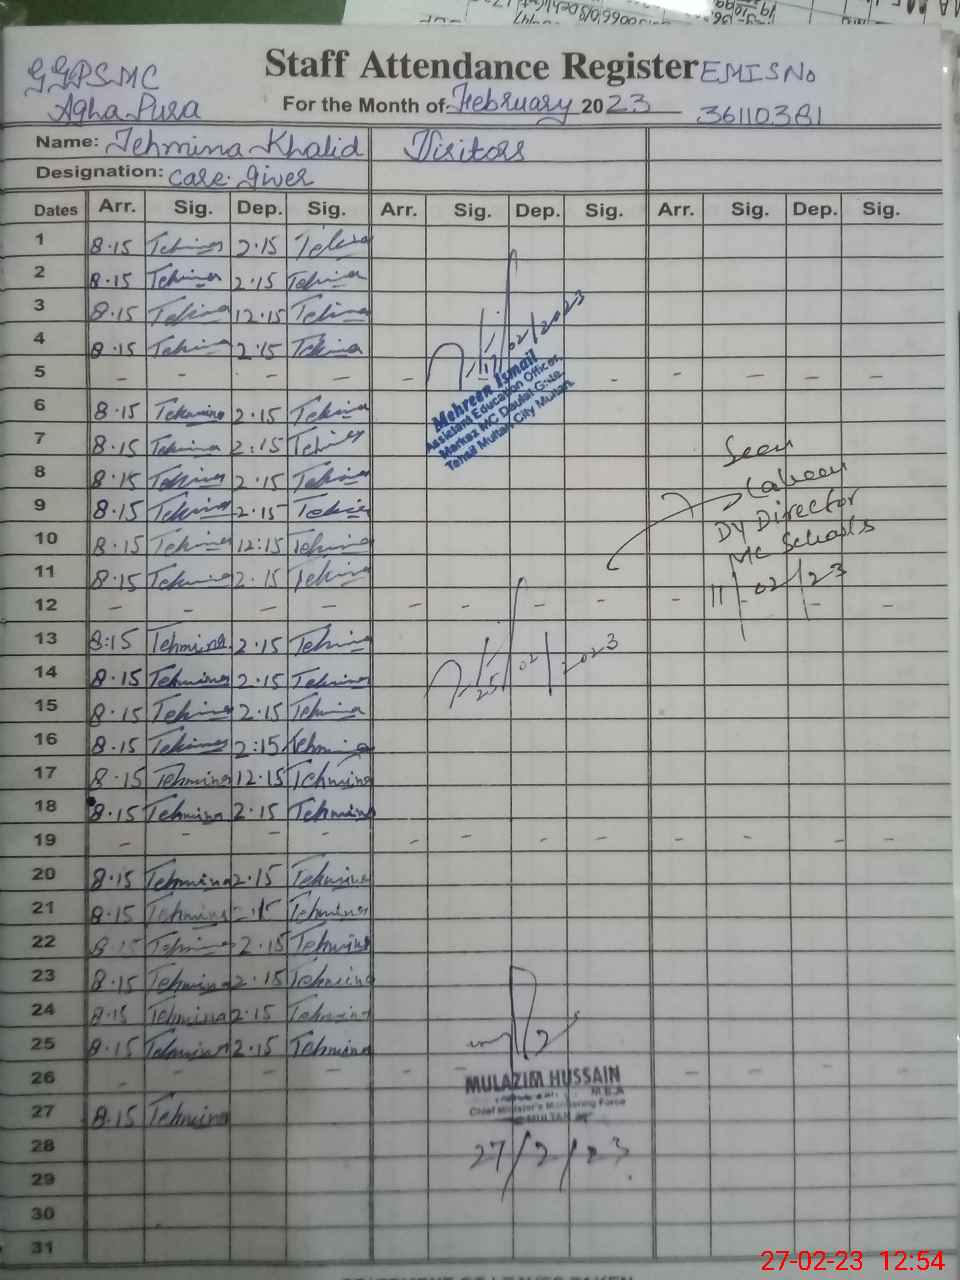 GGPSMC
Agha Pura
Staff Attendance Register
EMIS No
36110381
For the Month of February 2023
Name: Tehmina Khalid
Visitors
Designation: Care Giver
Dates Arr. Sig. Dep. Sig. Arr. Sig. Dep. Sig. Arr. Sig. Dep. Sig.
1 8.15 Tehmina 2.15 Tehmina
2 8.15 Tehmina 2.15 Tehmina
3 8.15 Tehmina 12.15 Tehmina
4 8.15 Tehmina 2.15 Tehmina
5 - - - - - - - - - -
6 8.15 Tehmina 2.15 Tehmina
7 8.15 Tehmina 2:15 Tehmina
8 8.15 Tehmina 2.15 Tehmina
9 8.15 Tehmina 2.15 Tehmina
10 8.15 Tehmina 12:15 Tehmina
11 8.15 Tehmina 2.15 Tehmina
12 - - - - - - - - - - -
13 8:15 Tehmina 2.15 Tehmina
14 8.15 Tehmina 2.15 Tehmina
15 8.15 Tehmina 2.15 Tehmina
16 8.15 Tehmina 2:15 Tehmina
17 8.15 Tehmina 12.15 Tehmina
18 8.15 Tehmina 2.15 Tehmina
19 - - - - - - - - - - - -
20 8.15 Tehmina 2.15 Tehmina
21 8.15 Tehmina 2.15 Tehmina
22 8.15 Tehmina 2.15 Tehmina
23 8.15 Tehmina 2.15 Tehmina
24 8.15 Tehmina 2.15 Tehmina
25 8.15 Tehmina 2.15 Tehmina
26 - - - - - - - - - -
27 8.15 Tehmina
28
29
30
31
17/02/2023
Mehreen Ismail
Assistant Education Officer,
Markaz MC Daulat Gate,
Tehsil Multan City Multan.
Seen
Dy Director
MC Schools
11/02/23
25/02/2023
MULAZIM HUSSAIN
M E A
Chief Minister's Monitoring Force
MULTAN
27/2/23
27-02-23 12:54